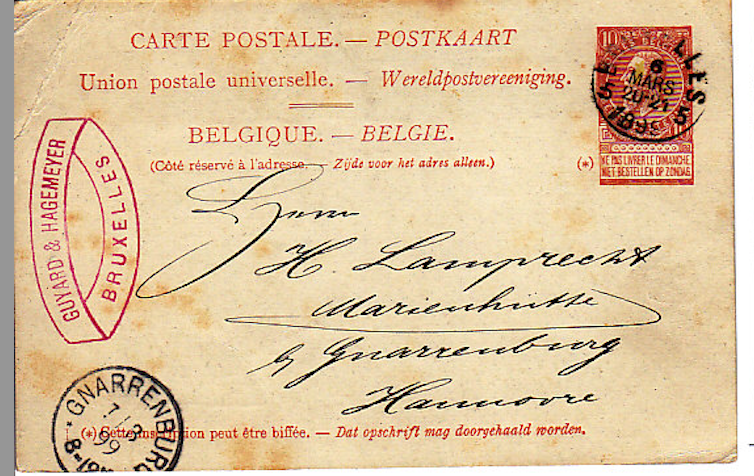 CARTE POSTALE. — POSTKAART
Union postale universelle. — Wereldpostvereeniging.
BELGIQUE. — BELGIE.
(Côté réservé à l'adresse. — Zijde voor het adres alleen.) (*)
10
BRUXELLES
5 5
6
MARS
20-21
NE PAS LIVRER LE DIMANCHE
NIET BESTELLEN OP ZONDAG
GUYARD & HAGEMEYER
BRUXELLES
Herrn
H. Lamprecht
Marienhütte
b/ Gnarrenburg
Hannovre
* GNARRENBURG
7/3
99
8-
(*) Cette inscription peut être biffée. — Dat opschrift mag doorgehaald worden.